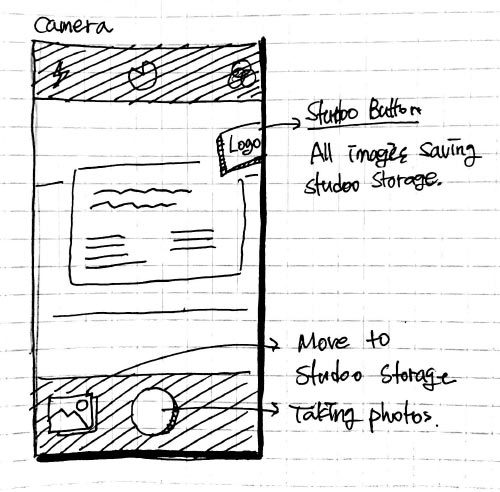 Camera
Logo
Studoo Button
All images saving
studoo storage.
Move to
Studoo storage
Taking photos.